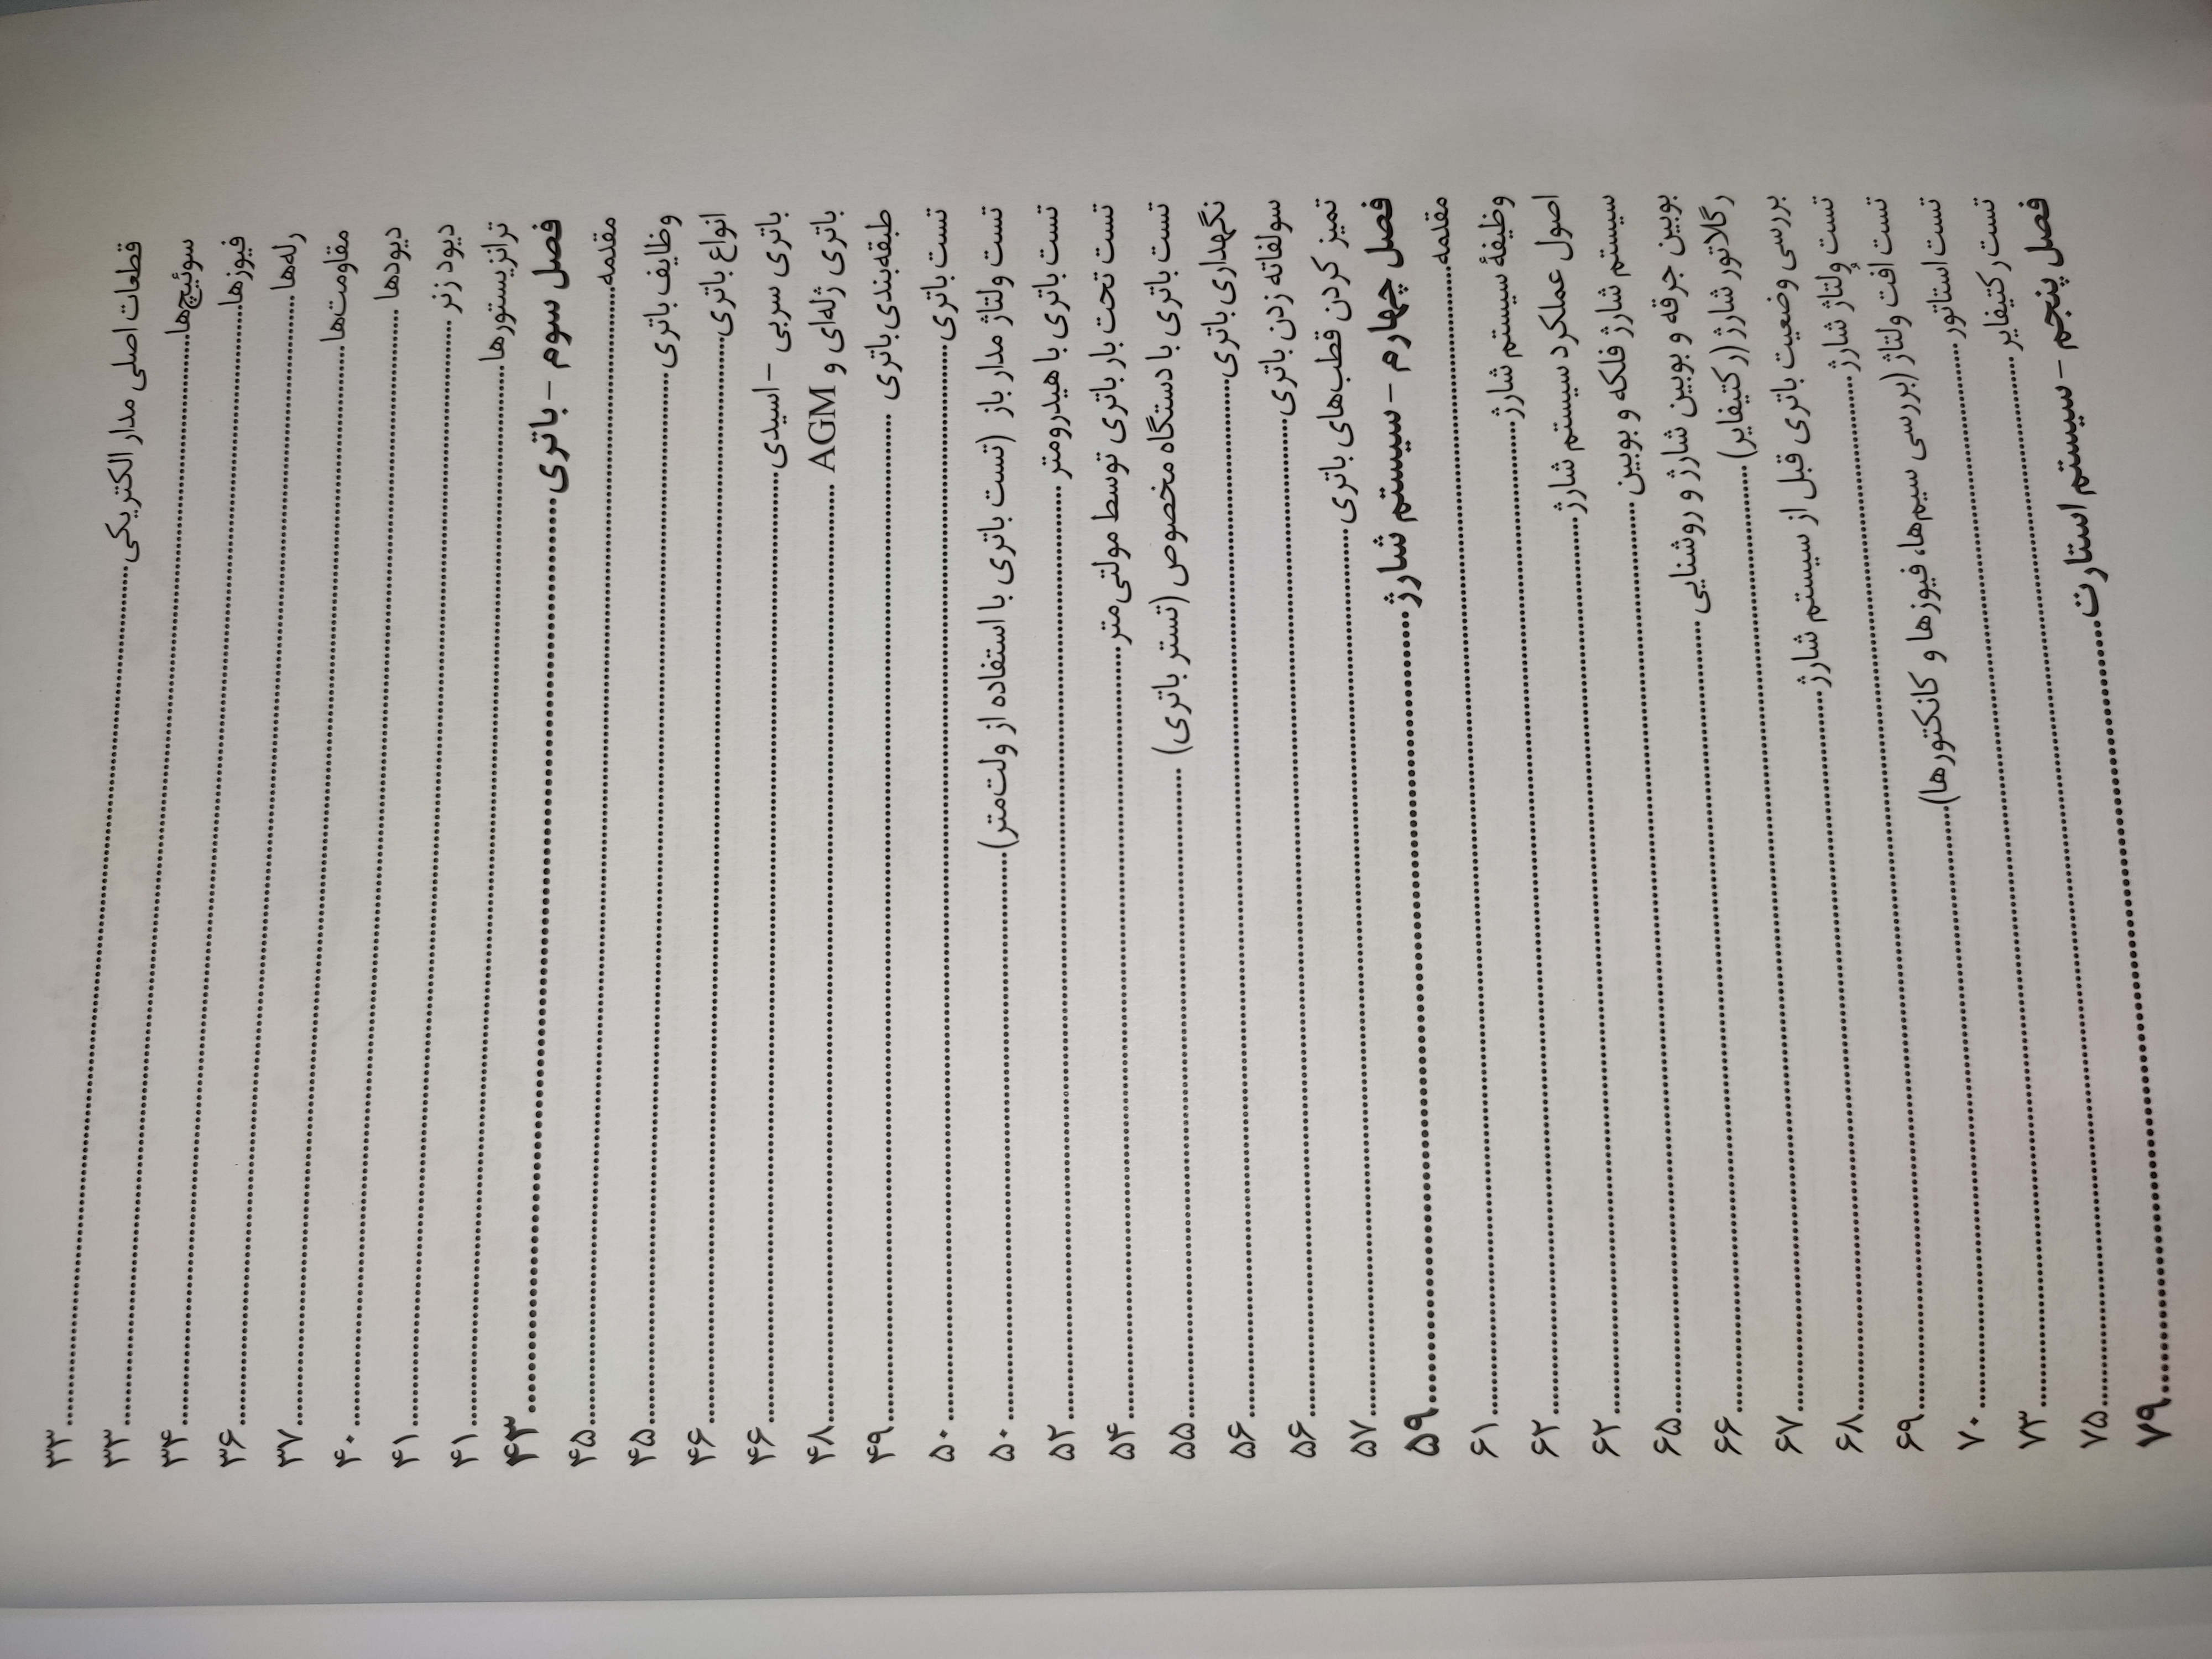 قطعات اصلی مدار الکتریکی ........ ۳۳
سوئیچ‌ها ........ ۳۳
فیوزها ........ ۳۴
رله‌ها ........ ۳۶
مقاومت‌ها ........ ۳۷
دیودها ........ ۴۰
دیود زنر ........ ۴۱
ترانزیستورها ........ ۴۱
فصل سوم – باتری ........ ۴۳
مقدمه ........ ۴۵
وظایف باتری ........ ۴۵
انواع باتری ........ ۴۶
باتری سربی – اسیدی ........ ۴۶
باتری ژله‌ای و AGM ........ ۴۸
طبقه‌بندی باتری ........ ۴۹
تست باتری ........ ۵۰
تست ولتاژ مدار باز (تست باتری با استفاده از ولت‌متر) ........ ۵۰
تست باتری با هیدرومتر ........ ۵۲
تست تحت بار باتری توسط مولتی‌متر ........ ۵۴
تست باتری با دستگاه مخصوص (تستر باتری) ........ ۵۵
نگهداری باتری ........ ۵۶
سولفاته زدن باتری ........ ۵۶
تمیز کردن قطب‌های باتری ........ ۵۷
فصل چهارم – سیستم شارژ ........ ۵۹
مقدمه ........ ۶۱
وظیفهٔ سیستم شارژ ........ ۶۲
اصول عملکرد سیستم شارژ ........ ۶۲
سیستم شارژ فلکه و بوبین ........ ۶۵
بوبین جرقه و بوبین شارژ و روشنایی ........ ۶۶
رگلاتور شارژ (رکتیفایر) ........ ۶۷
بررسی وضعیت باتری قبل از سیستم شارژ ........ ۶۸
تست ولتاژ شارژ ........ ۶۹
تست افت ولتاژ (بررسی سیم‌ها، فیوزها و کانکتورها) ........ ۷۰
تست استاتور ........ ۷۳
تست رکتیفایر ........ ۷۵
فصل پنجم – سیستم استارت ........ ۷۹